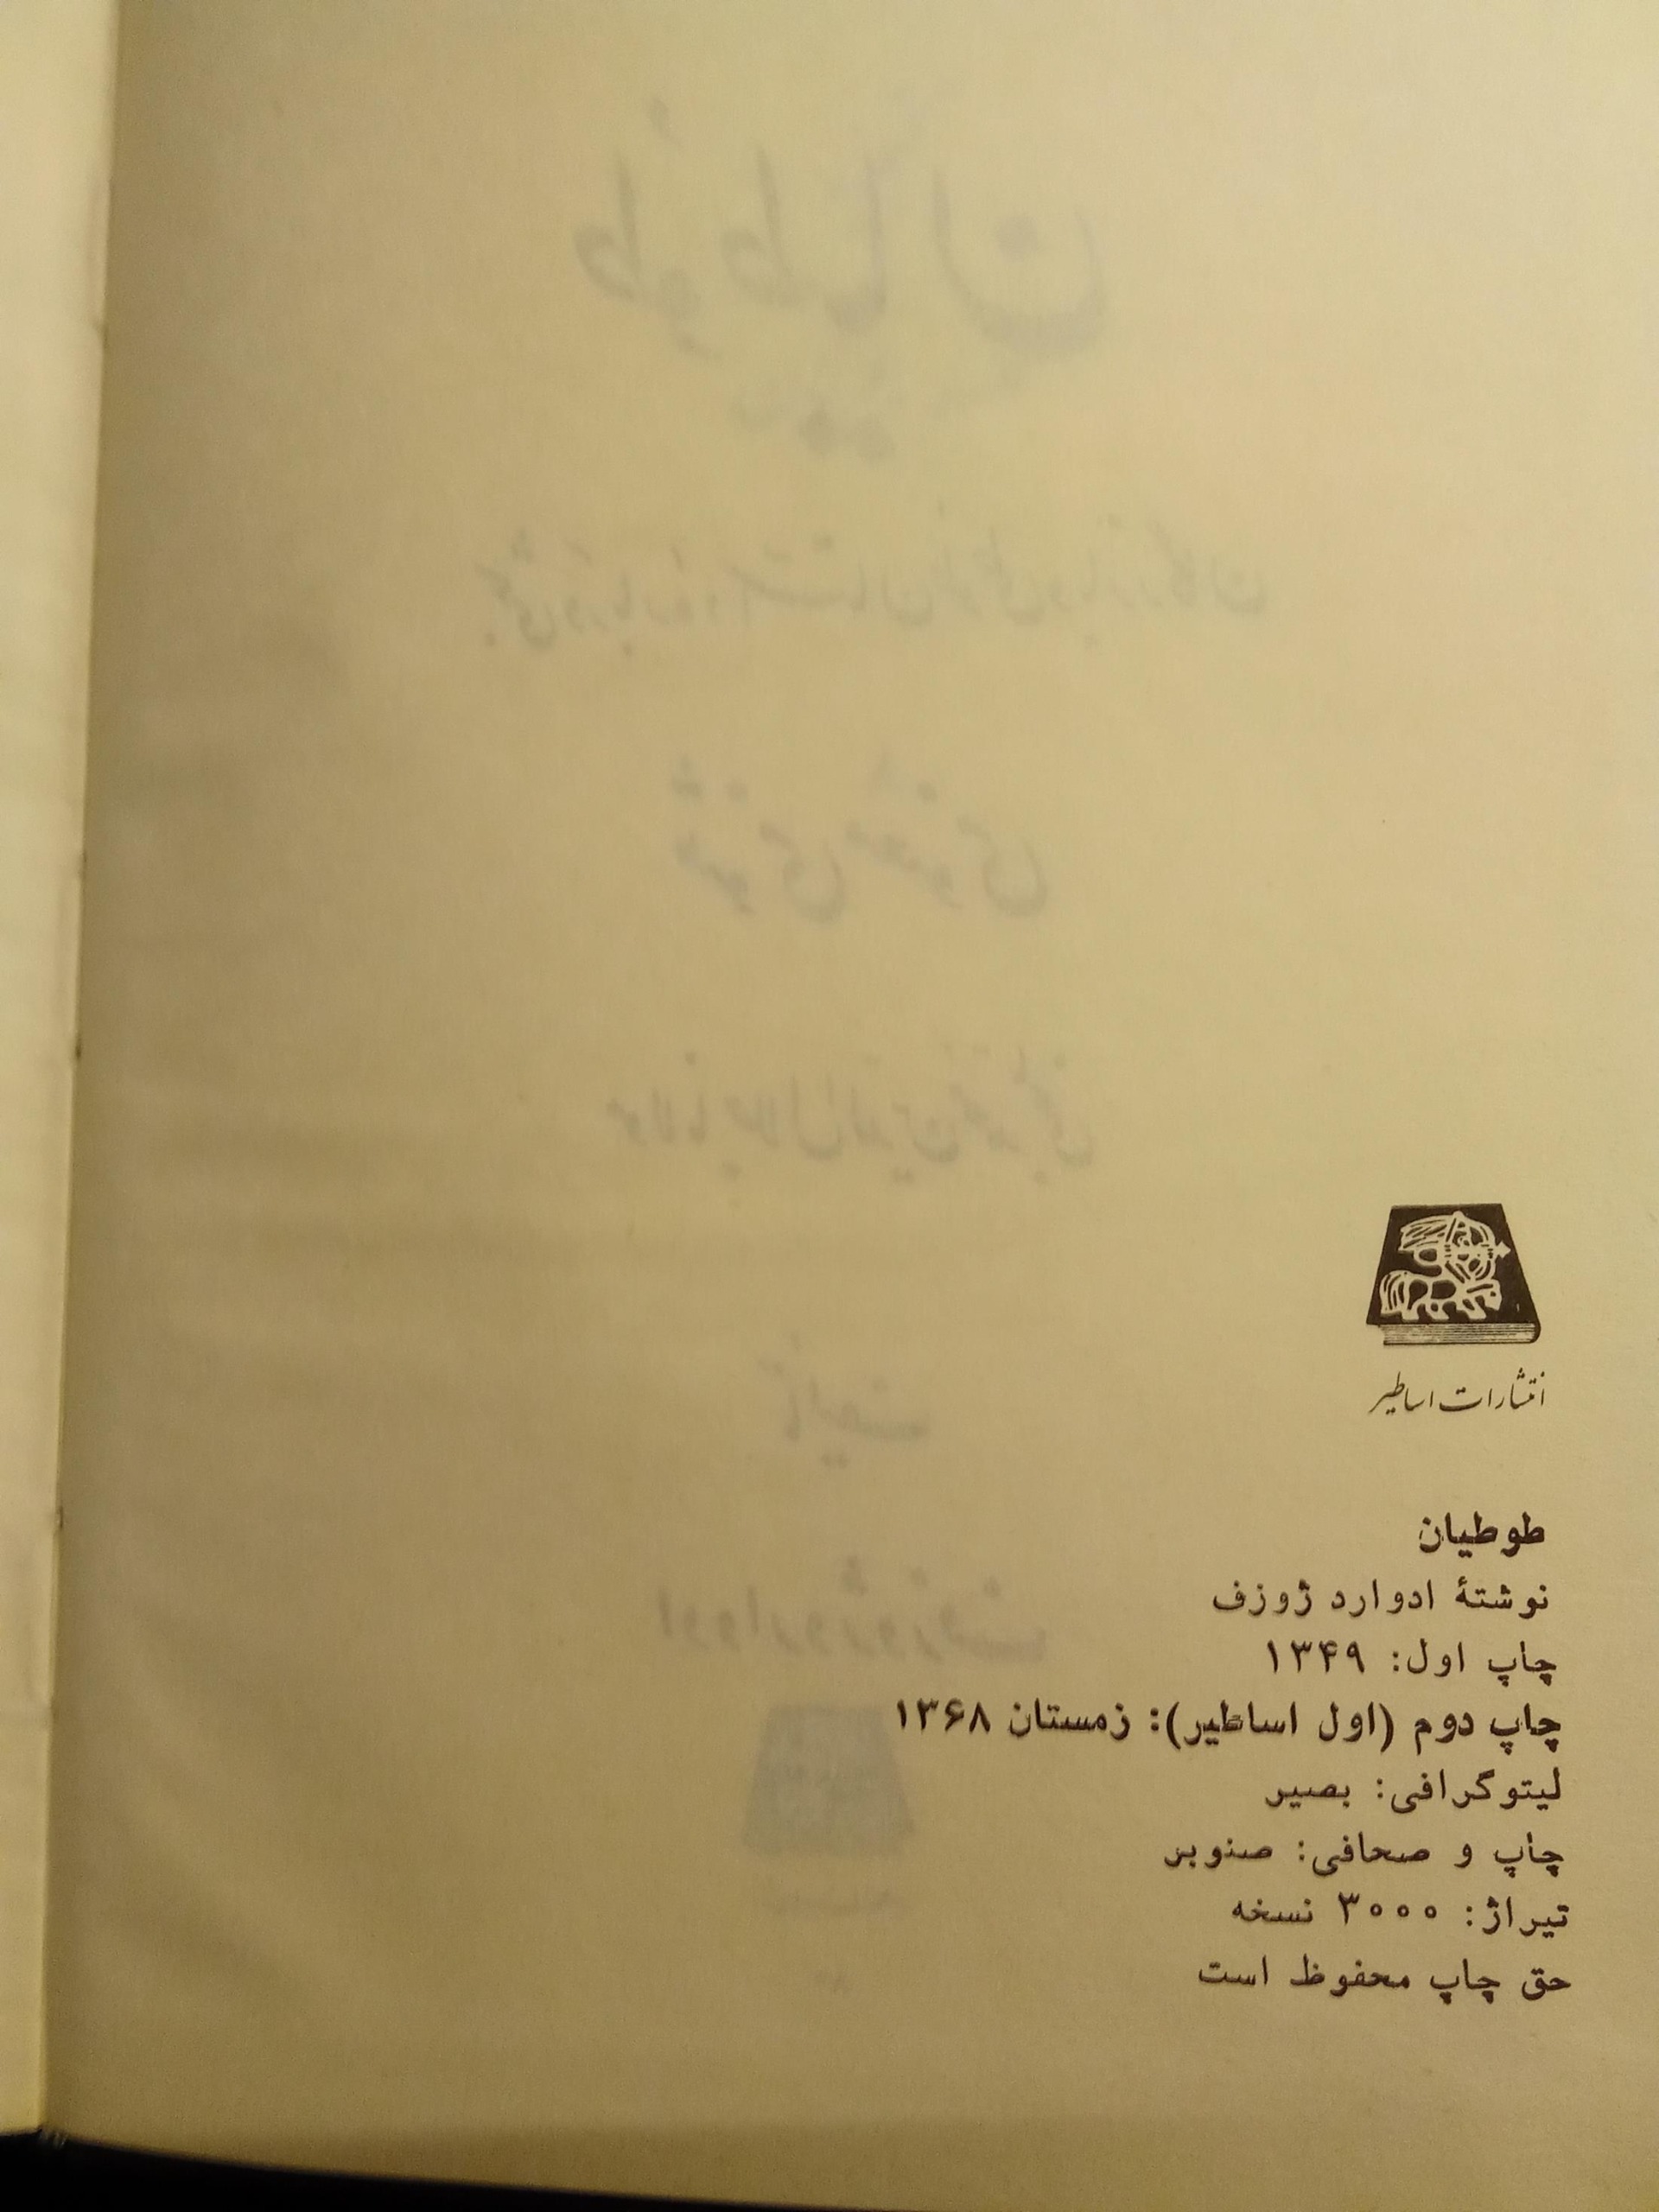 انتشارات اساطیر
طوطیان
نوشتهٔ ادوارد ژوزف
چاپ اول: ۱۳۴۹
چاپ دوم (اول اساطیر): زمستان ۱۳۶۸
لیتوگرافی: بصیر
چاپ و صحافی: صنوبر
تیراژ: ۳۰۰۰ نسخه
حق چاپ محفوظ است